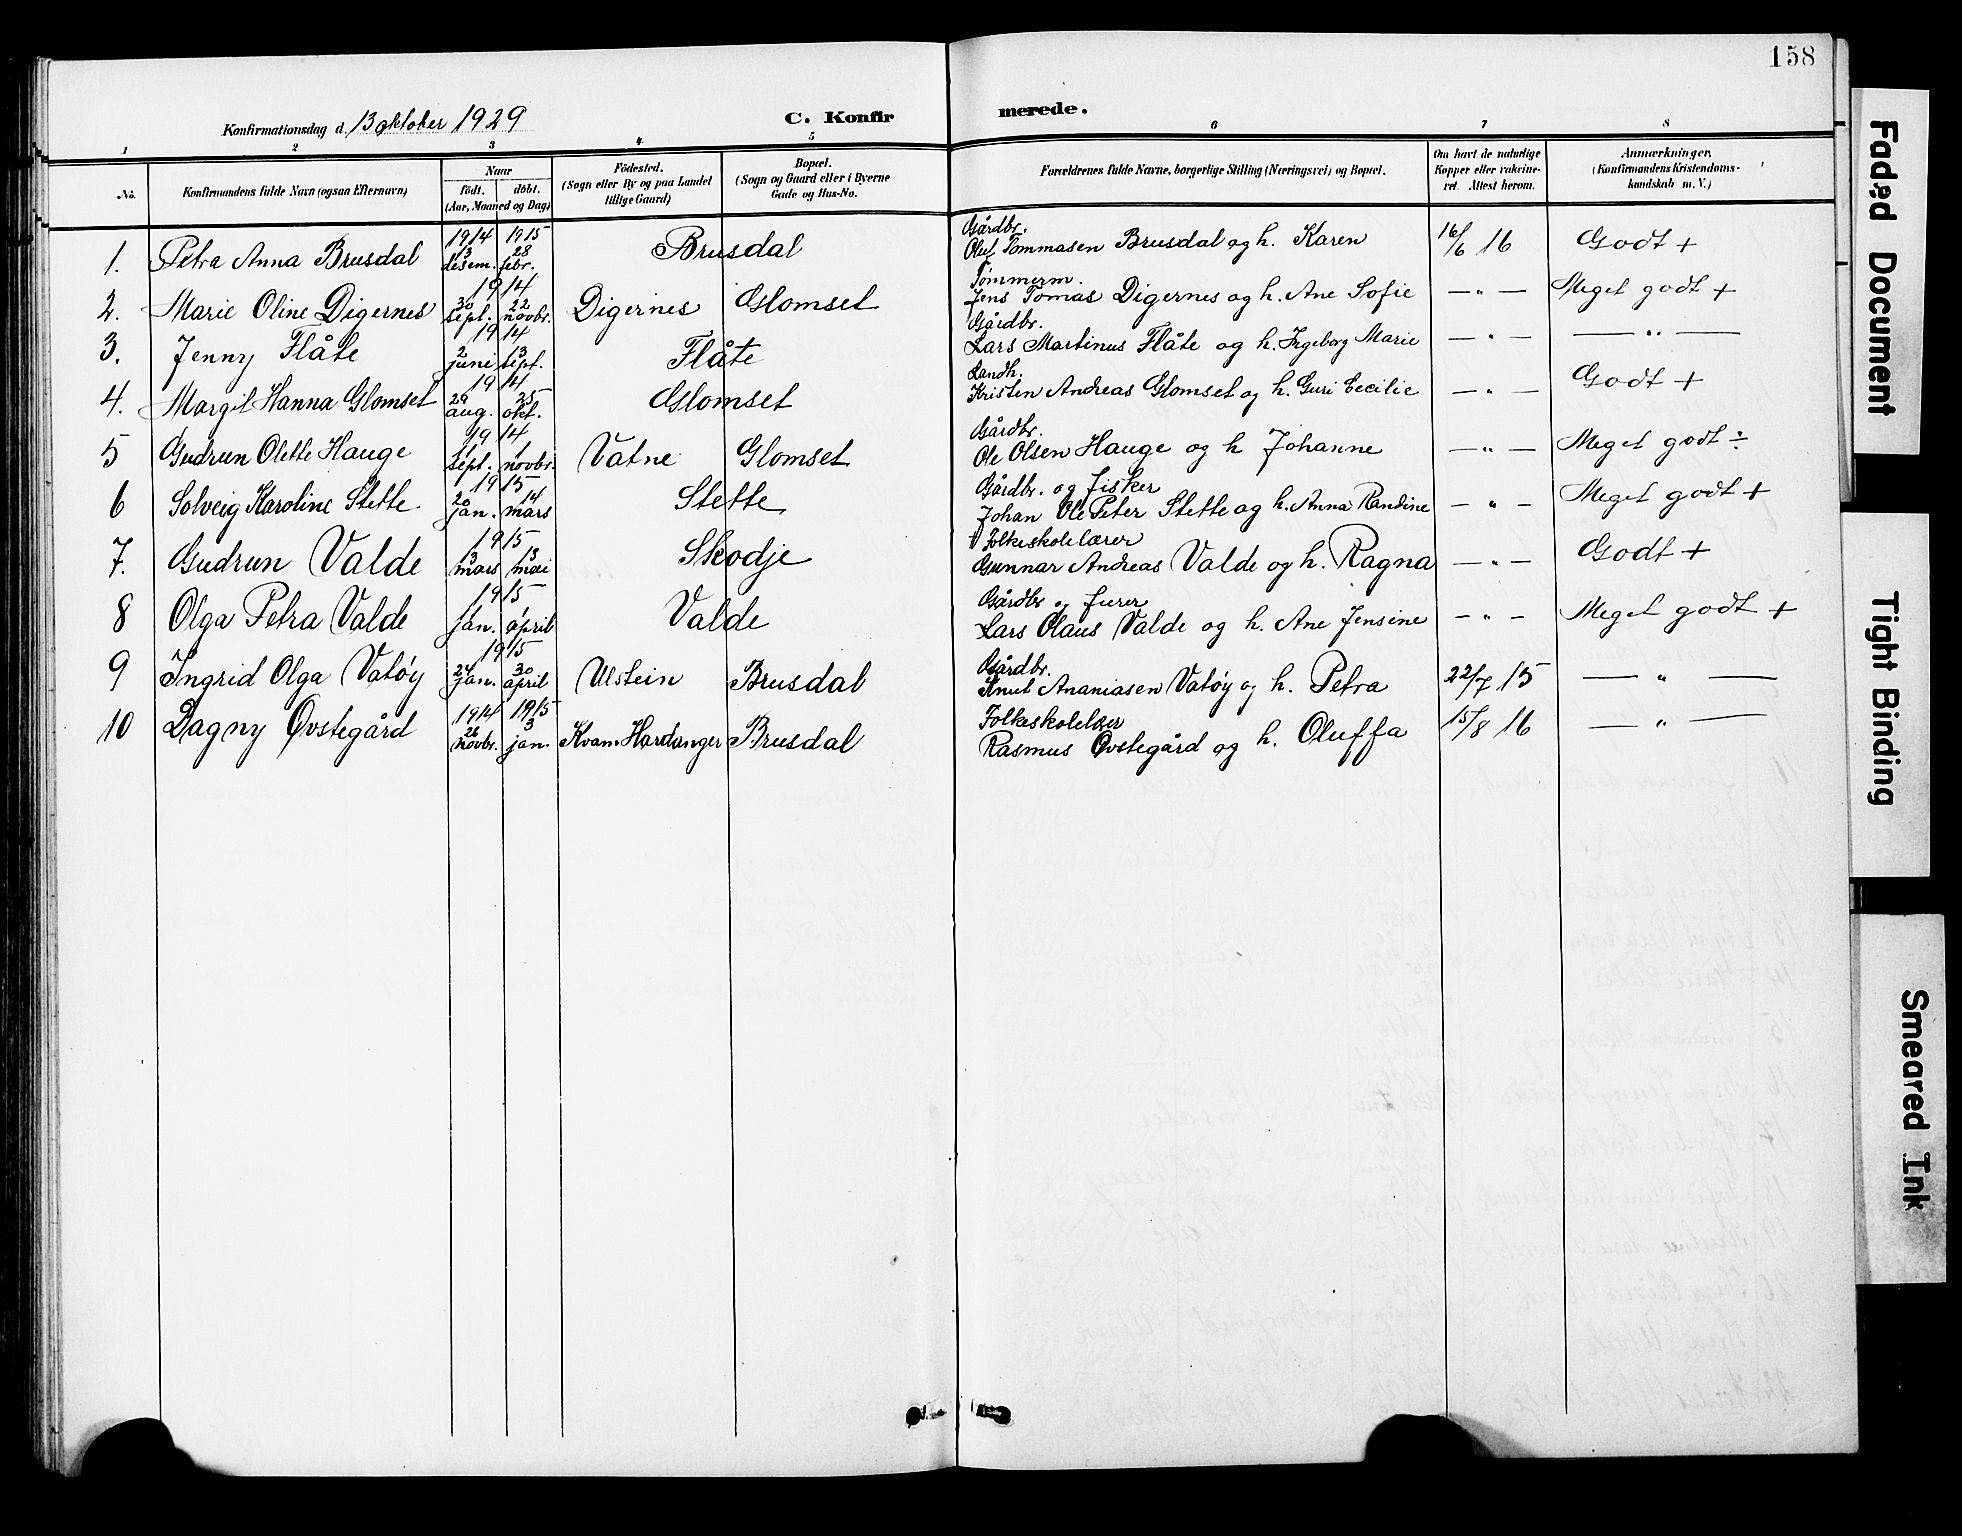 158
Konfirmationsdag d. 13 oktober 1929 C. Konfirmerede.
1 2 3 4 5 6 7 8
No. Konfirmandens fulde Navn (ogsaa Efternavn) Naar födt. döbt. (Aar, Maaned og Dag) Födested. (Sogn eller By og paa Landet tillige Gaard) Bopæl. (Sogn og Gaard eller i Byerne Gade og Hus-No. Forældrenes fulde Navne, borgerlige Stilling (Næringsvei) og Bopæl. Om havt de naturlige Kopper eller vakcineret. Attest herom. Anmærkninger. (Konfirmandens Kristendomskundskab m. V.)
1914 1915 Gårdbr.
1. Petra Anna Brusdal 13 desem. 28 febr. Brusdal Oluf Tommasen Brusdal og h. Karen 16/6 16 Godt +
1914 Tømmerm.
2. Marie Oline Digernes 30 sept. 22 novbr. Digernes Glomset Jens Tomas Digernes og h. Ane Sofie — " — Meget godt +
1914 Gårdbr.
3. Jenny Flåte 2 juni 13 sept. Flåte Lars Martinus Flåte og h. Ingeborg Marie — " — — " —
1914 Landh.
4. Margit Hanna Glomset 29 aug. 25 okt. Glomset Kristen Andreas Glomset og h. Guri Cecilie — " — Godt +
1914 Gårdbr.
5 Gudrun Olette Hauge 1 sept. 1 novbr. Vatne Glomset Ole Olsen Hauge og h Johanne — " — Meget godt ÷
1915 Gårdbr. og fisker
6 Solveig Karoline Stette 20 jan. 14 mars Stette Johan Ole Peter Stette og h. Anna Randine — " — Meget godt +
1915 Folkeskolelærer
7. Gudrun Valde 3 mars 13 mai Skodje Gunnar Andreas Valde og h. Ragna — " — Godt +
1915 Gårdbr og furer
8 Olga Petra Valde 1 jan. 1 april Valde Lars Olaus Valde og h. Ane Jensine — " — Meget godt +
1915 Gårdbr.
9 Ingrid Olga Vatøy 24 jan. 30 april Ulstein Brusdal Knut Ananiasen Vatøy og h. Petra 22/7 15 — " —
1914 1915 Folkeskolelær
10 Dagny Øvstegård 26 novbr. 3 jan. Kvam Hardanger Brusdal Rasmus Øvstegård og h. Oluffa 15/8 16 — " —
Faded Document
Tight Binding
Smeared Ink